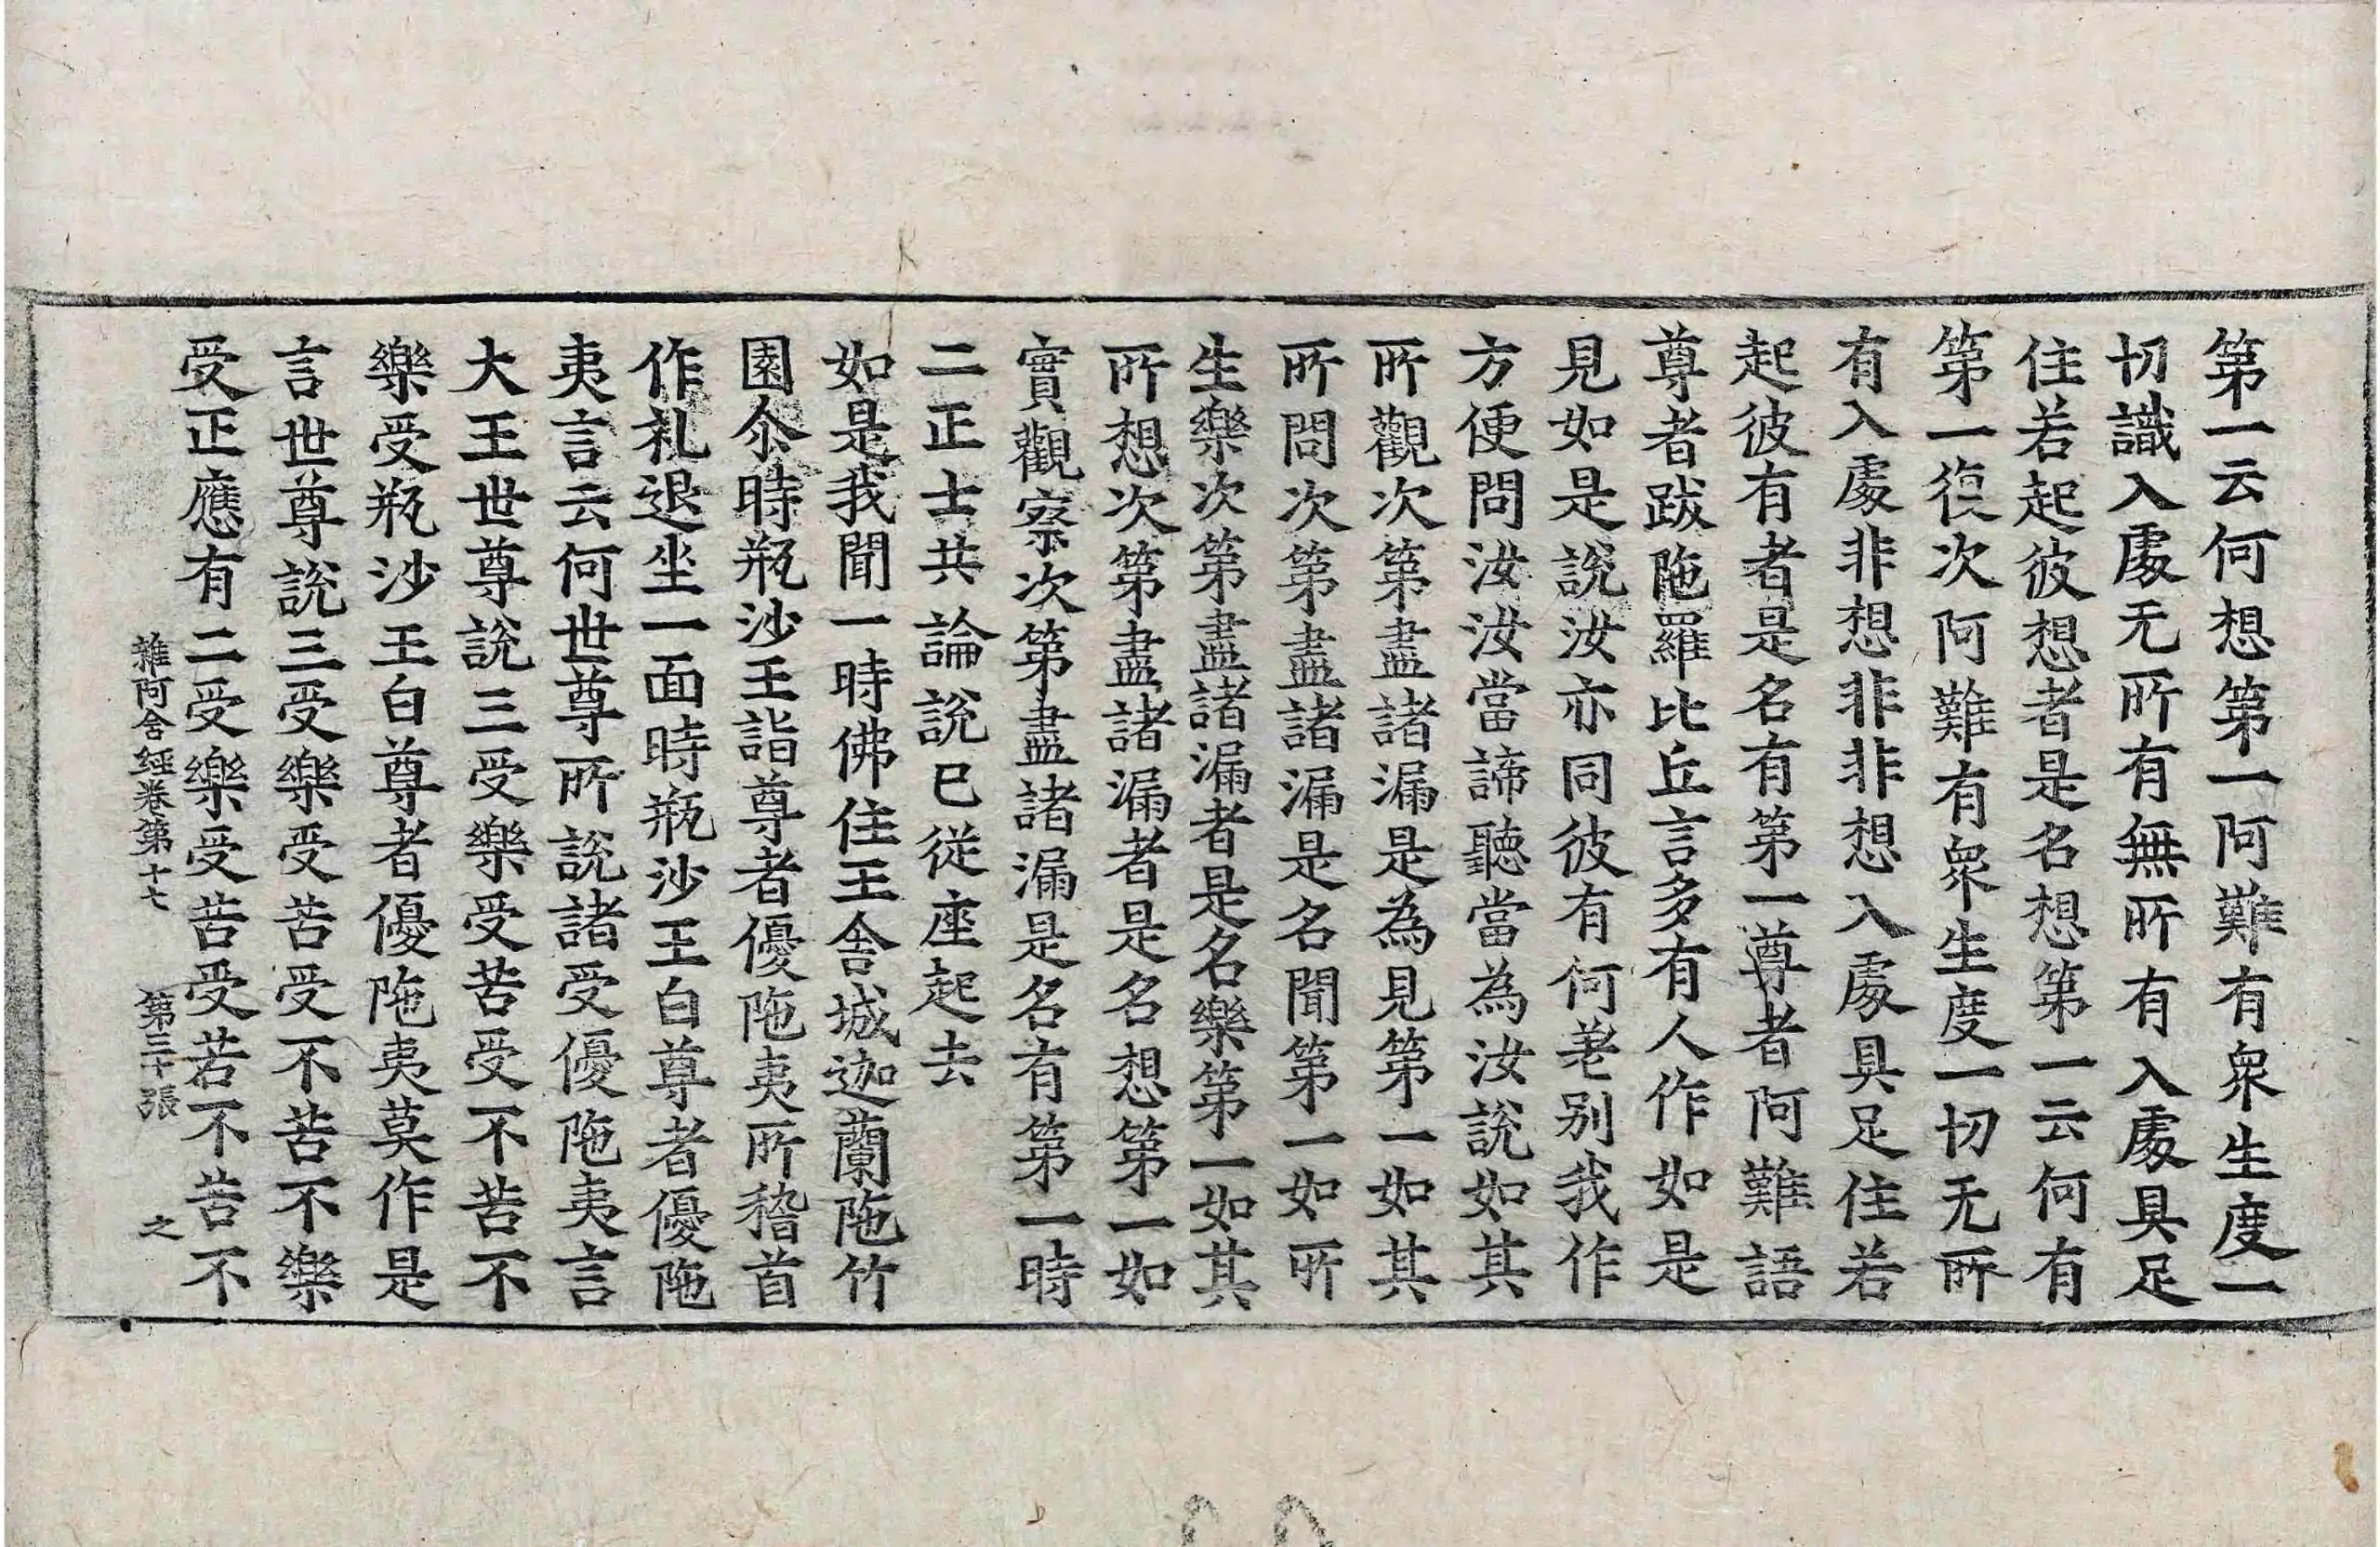 第一云何想第一阿難有衆生度一
切識入處无所有無所有入處具足
住若起彼想者是名想第一云何有
第一復次阿難有衆生度一切无所
有入處非想非非想入處具足住若
起彼有者是名有第一尊者阿難語
尊者跋陁羅比丘言多有人作如是
見如是說汝亦同彼有何差别我作
方便問汝汝當諦聽當為汝說如其
所觀次第盡諸漏是為見第一如其
所問次第盡諸漏是名聞第一如所
生樂次第盡諸漏者是名樂第一如其
所想次第盡諸漏者是名想第一如
實觀察次第盡諸漏是名有第一時
二正士共論說已從座起去
如是我聞一時佛住王舍城迦蘭陁竹
園尒時瓶沙王詣尊者優陁夷所稽首
作礼退坐一面時瓶沙王白尊者優陁
夷言云何世尊所說諸受優陁夷言
大王世尊說三受樂受苦受不苦不
樂受瓶沙王白尊者優陁夷莫作是
言世尊說三受樂受苦受不苦不樂
受正應有二受樂受苦受若不苦不
雜阿含經卷第十七 第三十張 之